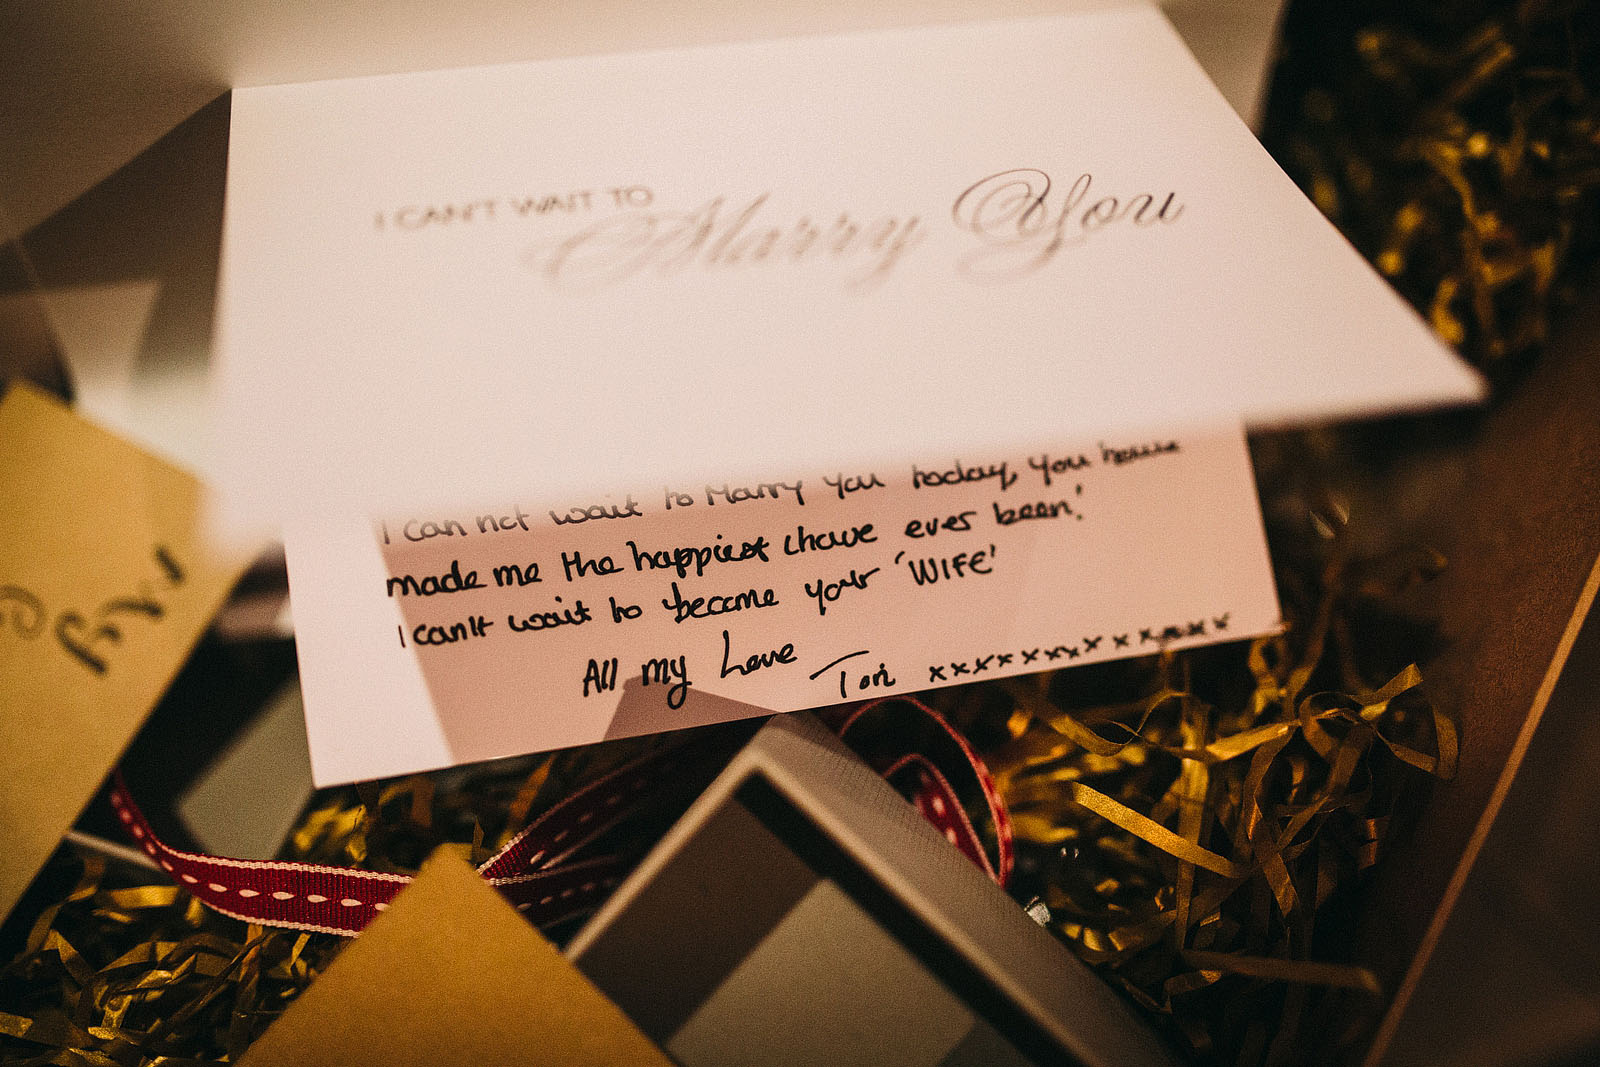 I CAN'T WAIT TO Marry You
I can not wait to Marry you today, you have
made me the happiest I have ever been!
I can't wait to become your 'WIFE'
All my Love
Tori xxxxxxxxxxxxxx